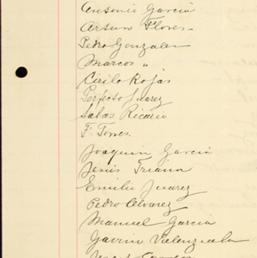 Antonio Garcia
Arturo Flores
Pedro Gonzales
Marcos "
Cirilo Rojas
Perfecto Juarez
Salas Ricario
F. Torres
Joaquin Garcia
Jesus Triana
Emilio Juarez
Pedro Alvarez
Manuel Garcia
Gavino Valenzuela